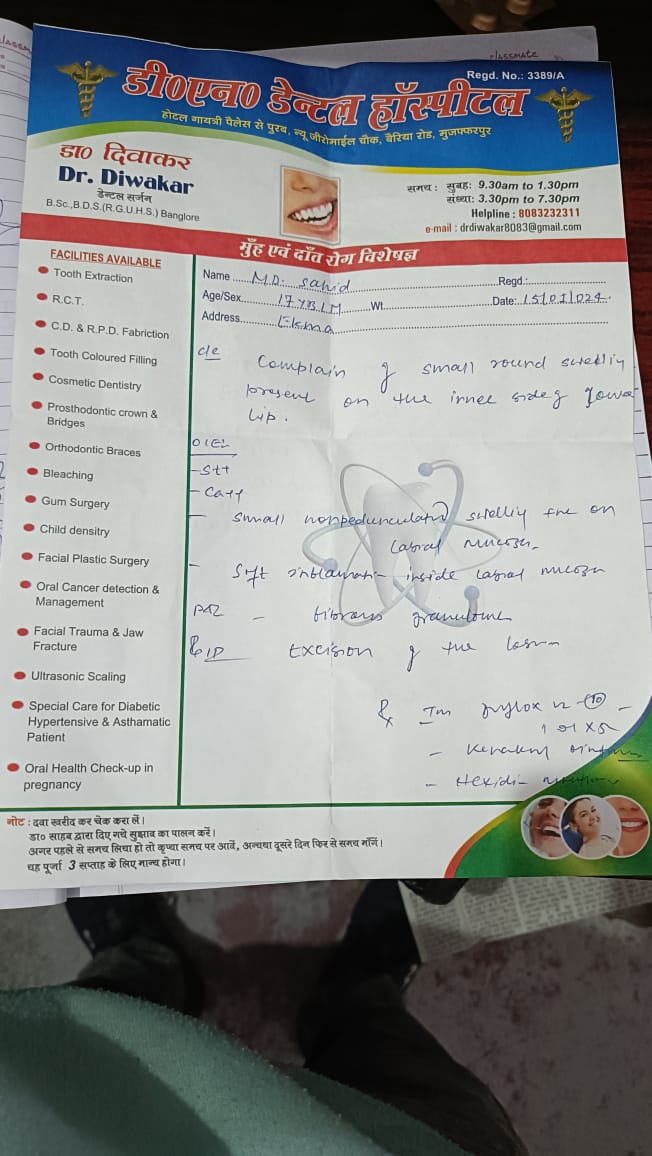 classmate
Regd. No.: 3389/A
डी०एन० डेन्टल हॉस्पीटल
होटल गायत्री पैलेस से पुरब, न्यू जीरोमाईल चौक, बैरिया रोड, मुजफ्फरपुर
डा० दिवाकर
Dr. Diwakar
डेन्टल सर्जन
B.Sc.,B.D.S.(R.G.U.H.S.) Banglore
समय : सुबह: 9.30am to 1.30pm
संध्या: 3.30pm to 7.30pm
Helpline : 8083232311
e-mail : drdiwakar8083@gmail.com
मुँह एवं दाँत रोग विशेषज्ञ
FACILITIES AVAILABLE
Tooth Extraction
R.C.T.
C.D. & R.P.D. Fabriction
Tooth Coloured Filling
Cosmetic Dentistry
Prosthodontic crown &
Bridges
Orthodontic Braces
Bleaching
Gum Surgery
Child densitry
Facial Plastic Surgery
Oral Cancer detection &
Management
Facial Trauma & Jaw
Fracture
Ultrasonic Scaling
Special Care for Diabetic
Hypertensive & Asthamatic
Patient
Oral Health Check-up in
pregnancy
Name M.D. Sahid Regd.:
Age/Sex 17 Y/M Wt. Date: 15/01/024
Address Ekma
c/e Complain of small round swelling
present on the inner side of lower
lip.
O/E
small nonpedunculated swelling on
labial mucosa
inside labial mucosa
fibrous
Excision of the
नोट : दवा खरीद कर चेक करा लें।
डा० साहब द्वारा दिए गये सुझाव का पालन करें।
अगर पहले से समय लिया हो तो कृप्या समय पर आवें, अन्यथा दूसरे दिन फिर से समय माँगें।
यह पूर्जा 3 सप्ताह के लिए मान्य होगा।